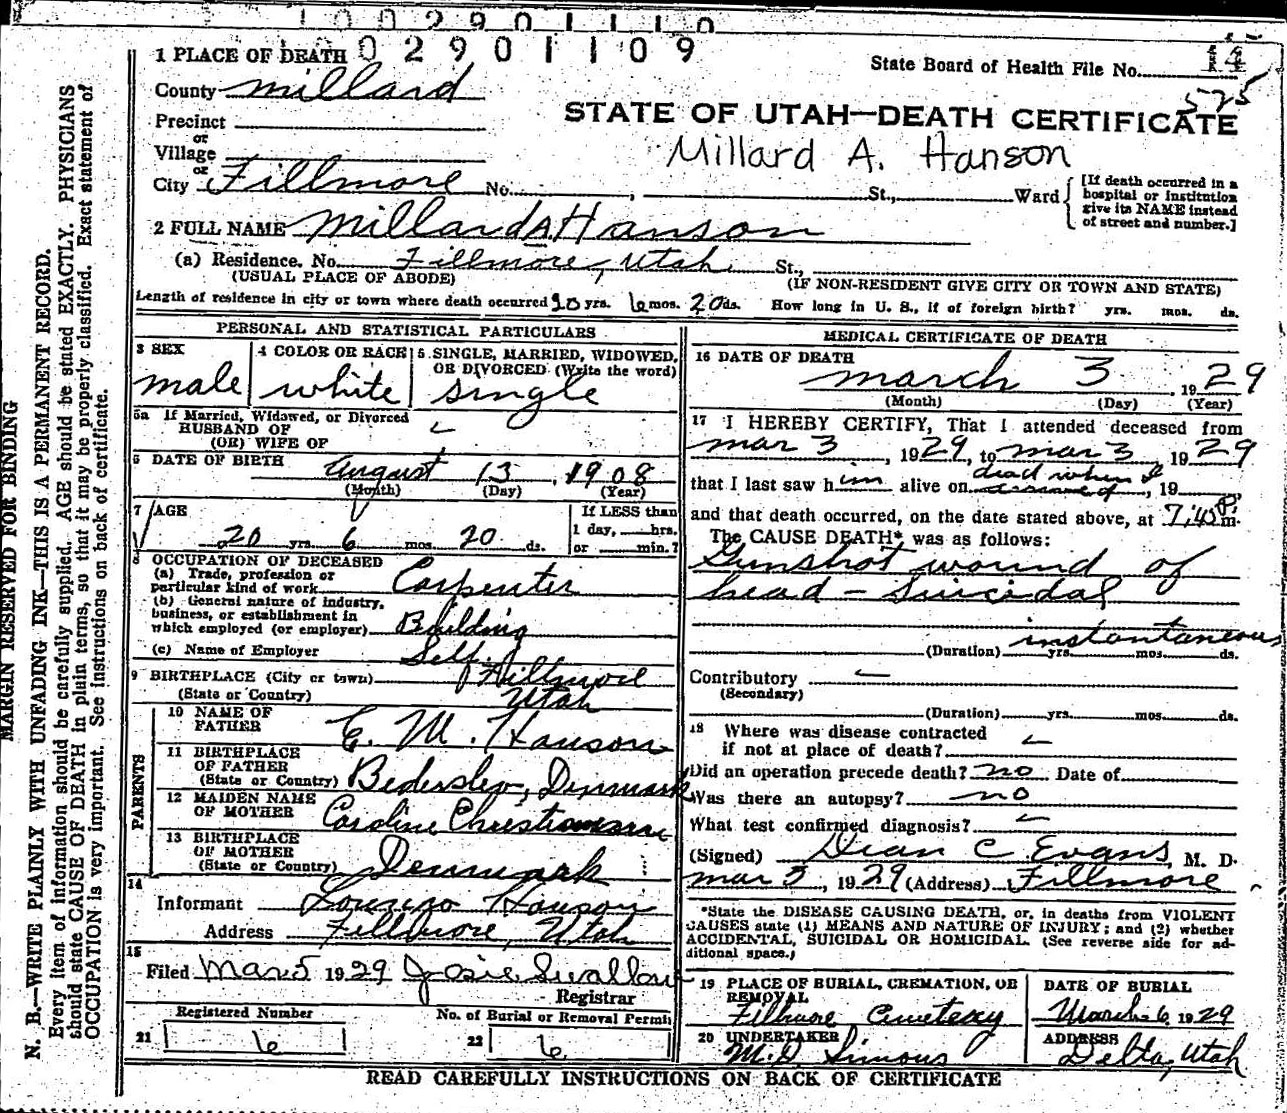 1002901110
02901109
1 PLACE OF DEATH
State Board of Health File No. 14
575
County Millard
STATE OF UTAH—DEATH CERTIFICATE
Precinct
or
Millard A. Hanson
Village
or
City Fillmore No. St., Ward
[If death occurred in a
hospital or institution
give its NAME instead
of street and number.]
2 FULL NAME Millard A Hanson
(a) Residence. No. Fillmore, Utah St.,
(USUAL PLACE OF ABODE) (IF NON-RESIDENT GIVE CITY OR TOWN AND STATE)
Length of residence in city or town where death occurred 20 yrs. 6 mos. 20 ds. How long in U. S., if of foreign birth? yrs. mos. ds.
PERSONAL AND STATISTICAL PARTICULARS
3 SEX
male
4 COLOR OR RACE
white
5 SINGLE, MARRIED, WIDOWED,
OR DIVORCED (Write the word)
single
5a If Married, Widowed, or Divorced
HUSBAND OF
(OR) WIFE OF
6 DATE OF BIRTH August 13, 1908
(Month) (Day) (Year)
7 AGE
20 yrs. 6 mos. 20 ds.
If LESS than
1 day, hrs.
or min.?
8 OCCUPATION OF DECEASED
(a) Trade, profession or
particular kind of work Carpenter
(b) General nature of industry,
business, or establishment in
which employed (or employer) Building
(c) Name of Employer Self.
9 BIRTHPLACE (City or town) Fillmore
(State or Country) Utah
PARENTS
10 NAME OF
FATHER E. M. Hanson
11 BIRTHPLACE
OF FATHER
(State or Country) Denmark
12 MAIDEN NAME
OF MOTHER Caroline
13 BIRTHPLACE
OF MOTHER
(State or Country) Denmark
14
Informant Lorenzo Hanson
Address Fillmore, Utah
15
Filed Mar 5 1929 Josie Swallow
Registrar
Registered Number No. of Burial or Removal Permit
21 6 22 6
MEDICAL CERTIFICATE OF DEATH
16 DATE OF DEATH
March 3, 1929
(Month) (Day) (Year)
17 I HEREBY CERTIFY, That I attended deceased from
Mar 3, 1929, to Mar 3, 1929
that I last saw him alive on dead when I arrived, 19
and that death occurred, on the date stated above, at 7,45 P. m.
The CAUSE DEATH* was as follows:
Gunshot wound of
head - Suicidal
instantaneous
(Duration) yrs. mos. ds.
Contributory
(Secondary)
(Duration) yrs. mos. ds.
18 Where was disease contracted
if not at place of death?
Did an operation precede death? no Date of
Was there an autopsy? no
What test confirmed diagnosis?
(Signed) Dean C Evans, M. D.
Mar 3, 1929 (Address) Fillmore
*State the DISEASE CAUSING DEATH, or, in deaths from VIOLENT
CAUSES state (1) MEANS AND NATURE OF INJURY; and (2) whether
ACCIDENTAL, SUICIDAL OR HOMICIDAL. (See reverse side for ad-
ditional space.)
19 PLACE OF BURIAL, CREMATION, OR
REMOVAL
Fillmore Cemetery
DATE OF BURIAL
March 6 1929
20 UNDERTAKER
M. D. Simons
ADDRESS
Delta, Utah
READ CAREFULLY INSTRUCTIONS ON BACK OF CERTIFICATE
MARGIN RESERVED FOR BINDING
N. B.—WRITE PLAINLY WITH UNFADING INK—THIS IS A PERMANENT RECORD.
Every item of information should be carefully supplied. AGE should be stated EXACTLY. PHYSICIANS
should state CAUSE OF DEATH in plain terms, so that it may be properly classified. Exact statement of
OCCUPATION is very important. See instructions on back of certificate.